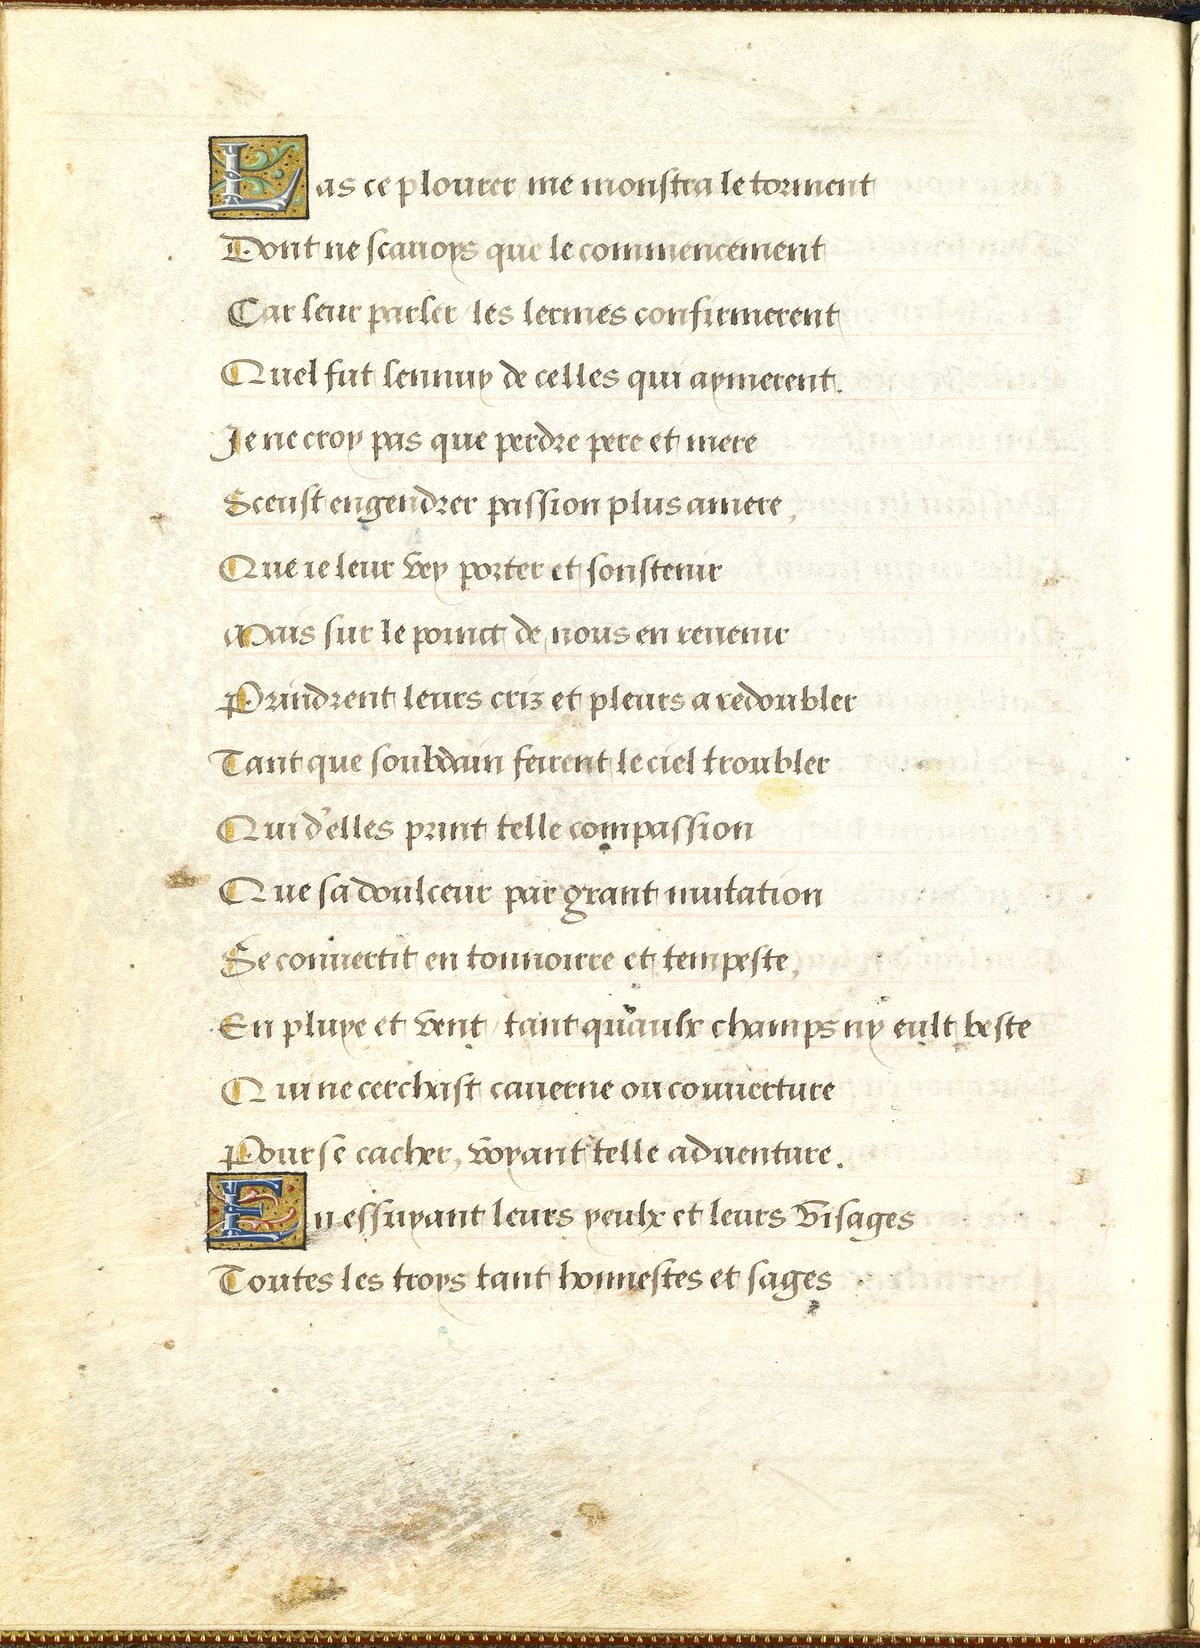 Las ce plourer me monstra le torment
Dont ne scauoys que le commencement
Car leur parler / les lermes confirmerent
Quel fut lennuy de celles qui aymerent.
Je ne croy pas que perdre pere et mere
Sceust engendrer passion plus amere,
Que ie leur vey porter et soustenir
Mais sur le poinct de nous en reuenir
Prindrent leurs criz et pleurs a redoubler
Tant que soubdain feirent le ciel troubler
Qui d'elles print telle compassion
Que sa doulceur par grant mutation
Se conuertit en tonnoirre et tempeste,
En pluye et vent / tant qu'aulx champs ny eult beste
Qui ne cerchast cauerne ou couuerture
Pour se cacher, voyant telle aduenture.
En essuyant leurs yeulx et leurs visages
Toutes les troys tant honnestes et sages